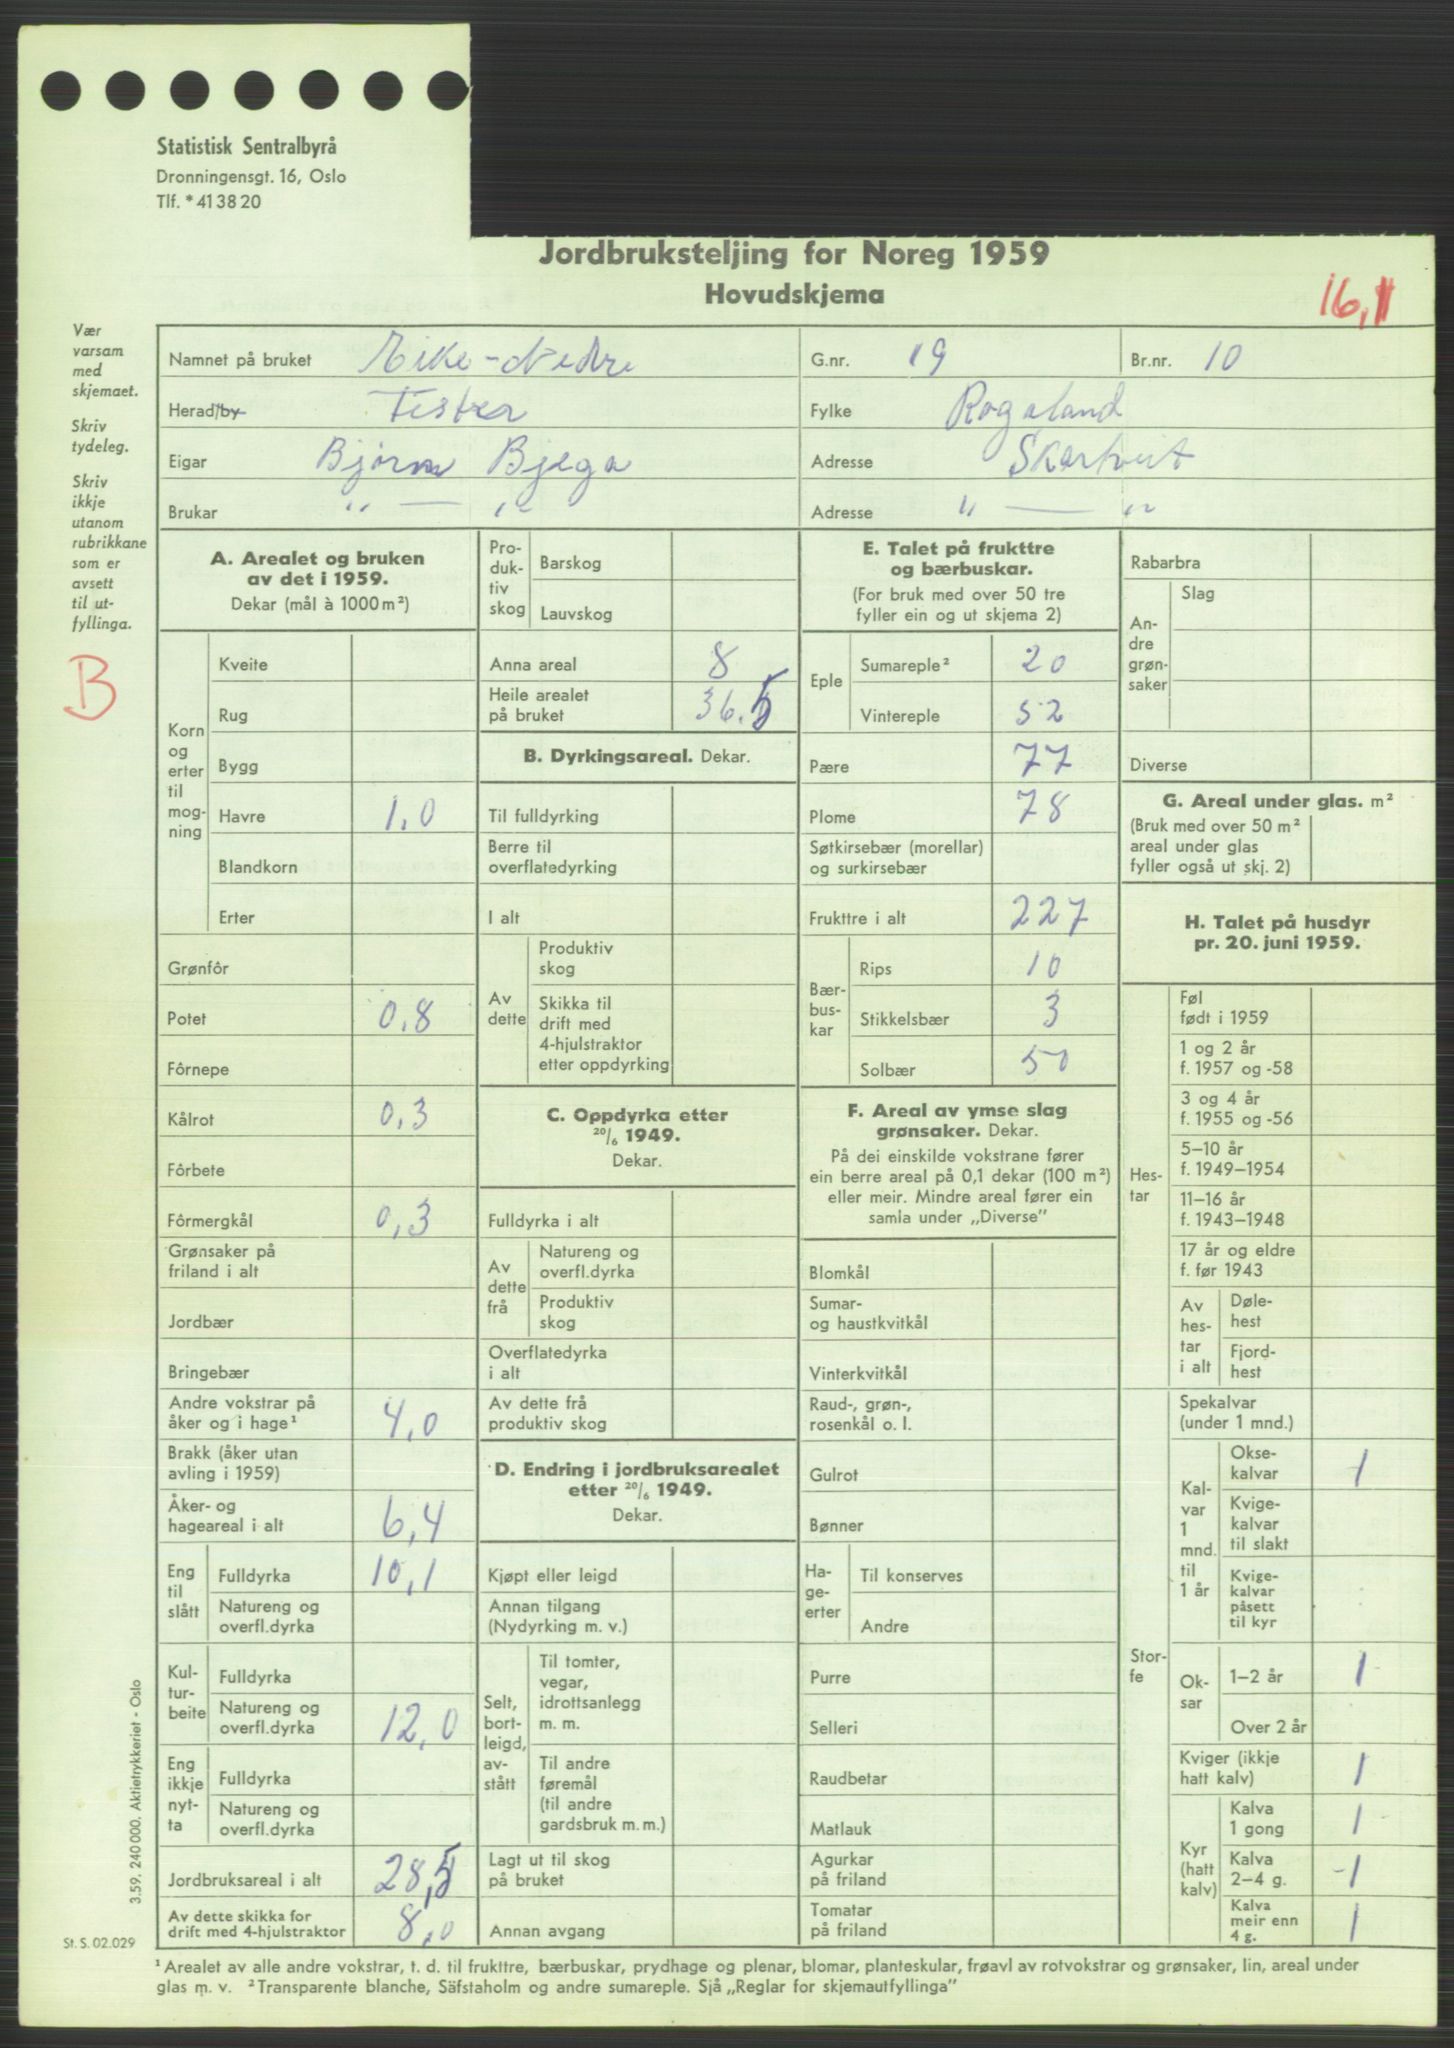 Statistisk Sentralbyrå
Dronningensgt. 16, Oslo
Tlf. *41 38 20
Jordbruksteljing for Noreg 1959
Hovudskjema
16,1
Vær
varsam
med
skjemaet.
Skriv
tydeleg.
Skriv
ikkje
utanom
rubrikkane
som er
avsett
til ut-
fyllinga.
B
Namnet på bruket Eike-Nedre G.nr. 19 Br.nr. 10
Herad/by Fister Fylke Rogaland
Eigar Bjørn Bjega Adresse Skartveit
Brukar " — " Adresse " — "
A. Arealet og bruken
av det i 1959.
Dekar (mål à 1000 m²)
Korn og erter til mog-ning
Kveite
Rug
Bygg
Havre 1,0
Blandkorn
Erter
Grønfôr
Potet 0,8
Fôrnepe
Kålrot 0,3
Fôrbete
Fôrmergkål 0,3
Grønsaker på
friland i alt
Jordbær
Bringebær
Andre vokstrar på
åker og i hage¹ 4,0
Brakk (åker utan
avling i 1959)
Åker- og
hageareal i alt 6,4
Eng til slått
Fulldyrka 10,1
Natureng og
overfl.dyrka
Kul-tur-beite
Fulldyrka
Natureng og
overfl.dyrka 12,0
Eng ikkje nyt-ta
Fulldyrka
Natureng og
overfl.dyrka
Jordbruksareal i alt 28,5
Av dette skikka for
drift med 4-hjulstraktor 8,0
Pro-duk-tiv skog
Barskog
Lauvskog
Anna areal 8
Heile arealet
på bruket 36.5
B. Dyrkingsareal. Dekar.
Til fulldyrking
Berre til
overflatedyrking
I alt
Av dette
Produktiv
skog
Skikka til
drift med
4-hjulstraktor
etter oppdyrking
C. Oppdyrka etter
20/6 1949.
Dekar.
Fulldyrka i alt
Av dette frå
Natureng og
overfl.dyrka
Produktiv
skog
Overflatedyrka
i alt
Av dette frå
produktiv skog
D. Endring i jordbruksarealet
etter 20/6 1949.
Dekar.
Kjøpt eller leigd
Annan tilgang
(Nydyrking m. v.)
Selt, bort-leigd, av-stått
Til tomter,
vegar,
idrottsanlegg
m. m.
Til andre
føremål
(til andre
gardsbruk m. m.)
Lagt ut til skog
på bruket
Annan avgang
E. Talet på frukttre
og bærbuskar.
(For bruk med over 50 tre
fyller ein og ut skjema 2)
Eple
Sumareple² 20
Vintereple 52
Pære 77
Plome 78
Søtkirsebær (morellar)
og surkirsebær
Frukttre i alt 227
Bær-bus-kar
Rips 10
Stikkelsbær 3
Solbær 50
F. Areal av ymse slag
grønsaker. Dekar.
På dei einskilde vokstrane fører
ein berre areal på 0,1 dekar (100 m²)
eller meir. Mindre areal fører ein
samla under „Diverse”
Blomkål
Sumar-
og haustkvitkål
Vinterkvitkål
Raud-, grøn-,
rosenkål o. l.
Gulrot
Bønner
Ha-ge-erter
Til konserves
Andre
Purre
Selleri
Raudbetar
Matlauk
Agurkar
på friland
Tomatar
på friland
Rabarbra
An-dre grøn-saker
Slag
Diverse
G. Areal under glas. m²
(Bruk med over 50 m²
areal under glas
fyller også ut skj. 2)
H. Talet på husdyr
pr. 20. juni 1959.
Hes-tar
Føl
født i 1959
1 og 2 år
f. 1957 og -58
3 og 4 år
f. 1955 og -56
5–10 år
f. 1949–1954
11–16 år
f. 1943–1948
17 år og eldre
f. før 1943
Av hes-tar i alt
Døle-
hest
Fjord-
hest
Stor-fe
Spekalvar
(under 1 mnd.)
Kal-var 1 mnd. til 1 år
Okse-
kalvar 1
Kvige-
kalvar
til slakt
Kvige-
kalvar
påsett
til kyr
Ok-sar
1–2 år 1
Over 2 år
Kviger (ikkje
hatt kalv) 1
Kyr (hatt kalv)
Kalva
1 gong 1
Kalva
2–4 g. 1
Kalva
meir enn
4 g. 1
3.59. 240 000. Aktietrykkeriet - Oslo
St. S. 02.029
¹ Arealet av alle andre vokstrar, t. d. til frukttre, bærbuskar, prydhage og plenar, blomar, planteskular, frøavl av rotvokstrar og grønsaker, lin, areal under
glas m. v. ² Transparente blanche, Säfstaholm og andre sumareple. Sjå „Reglar for skjemautfyllinga”